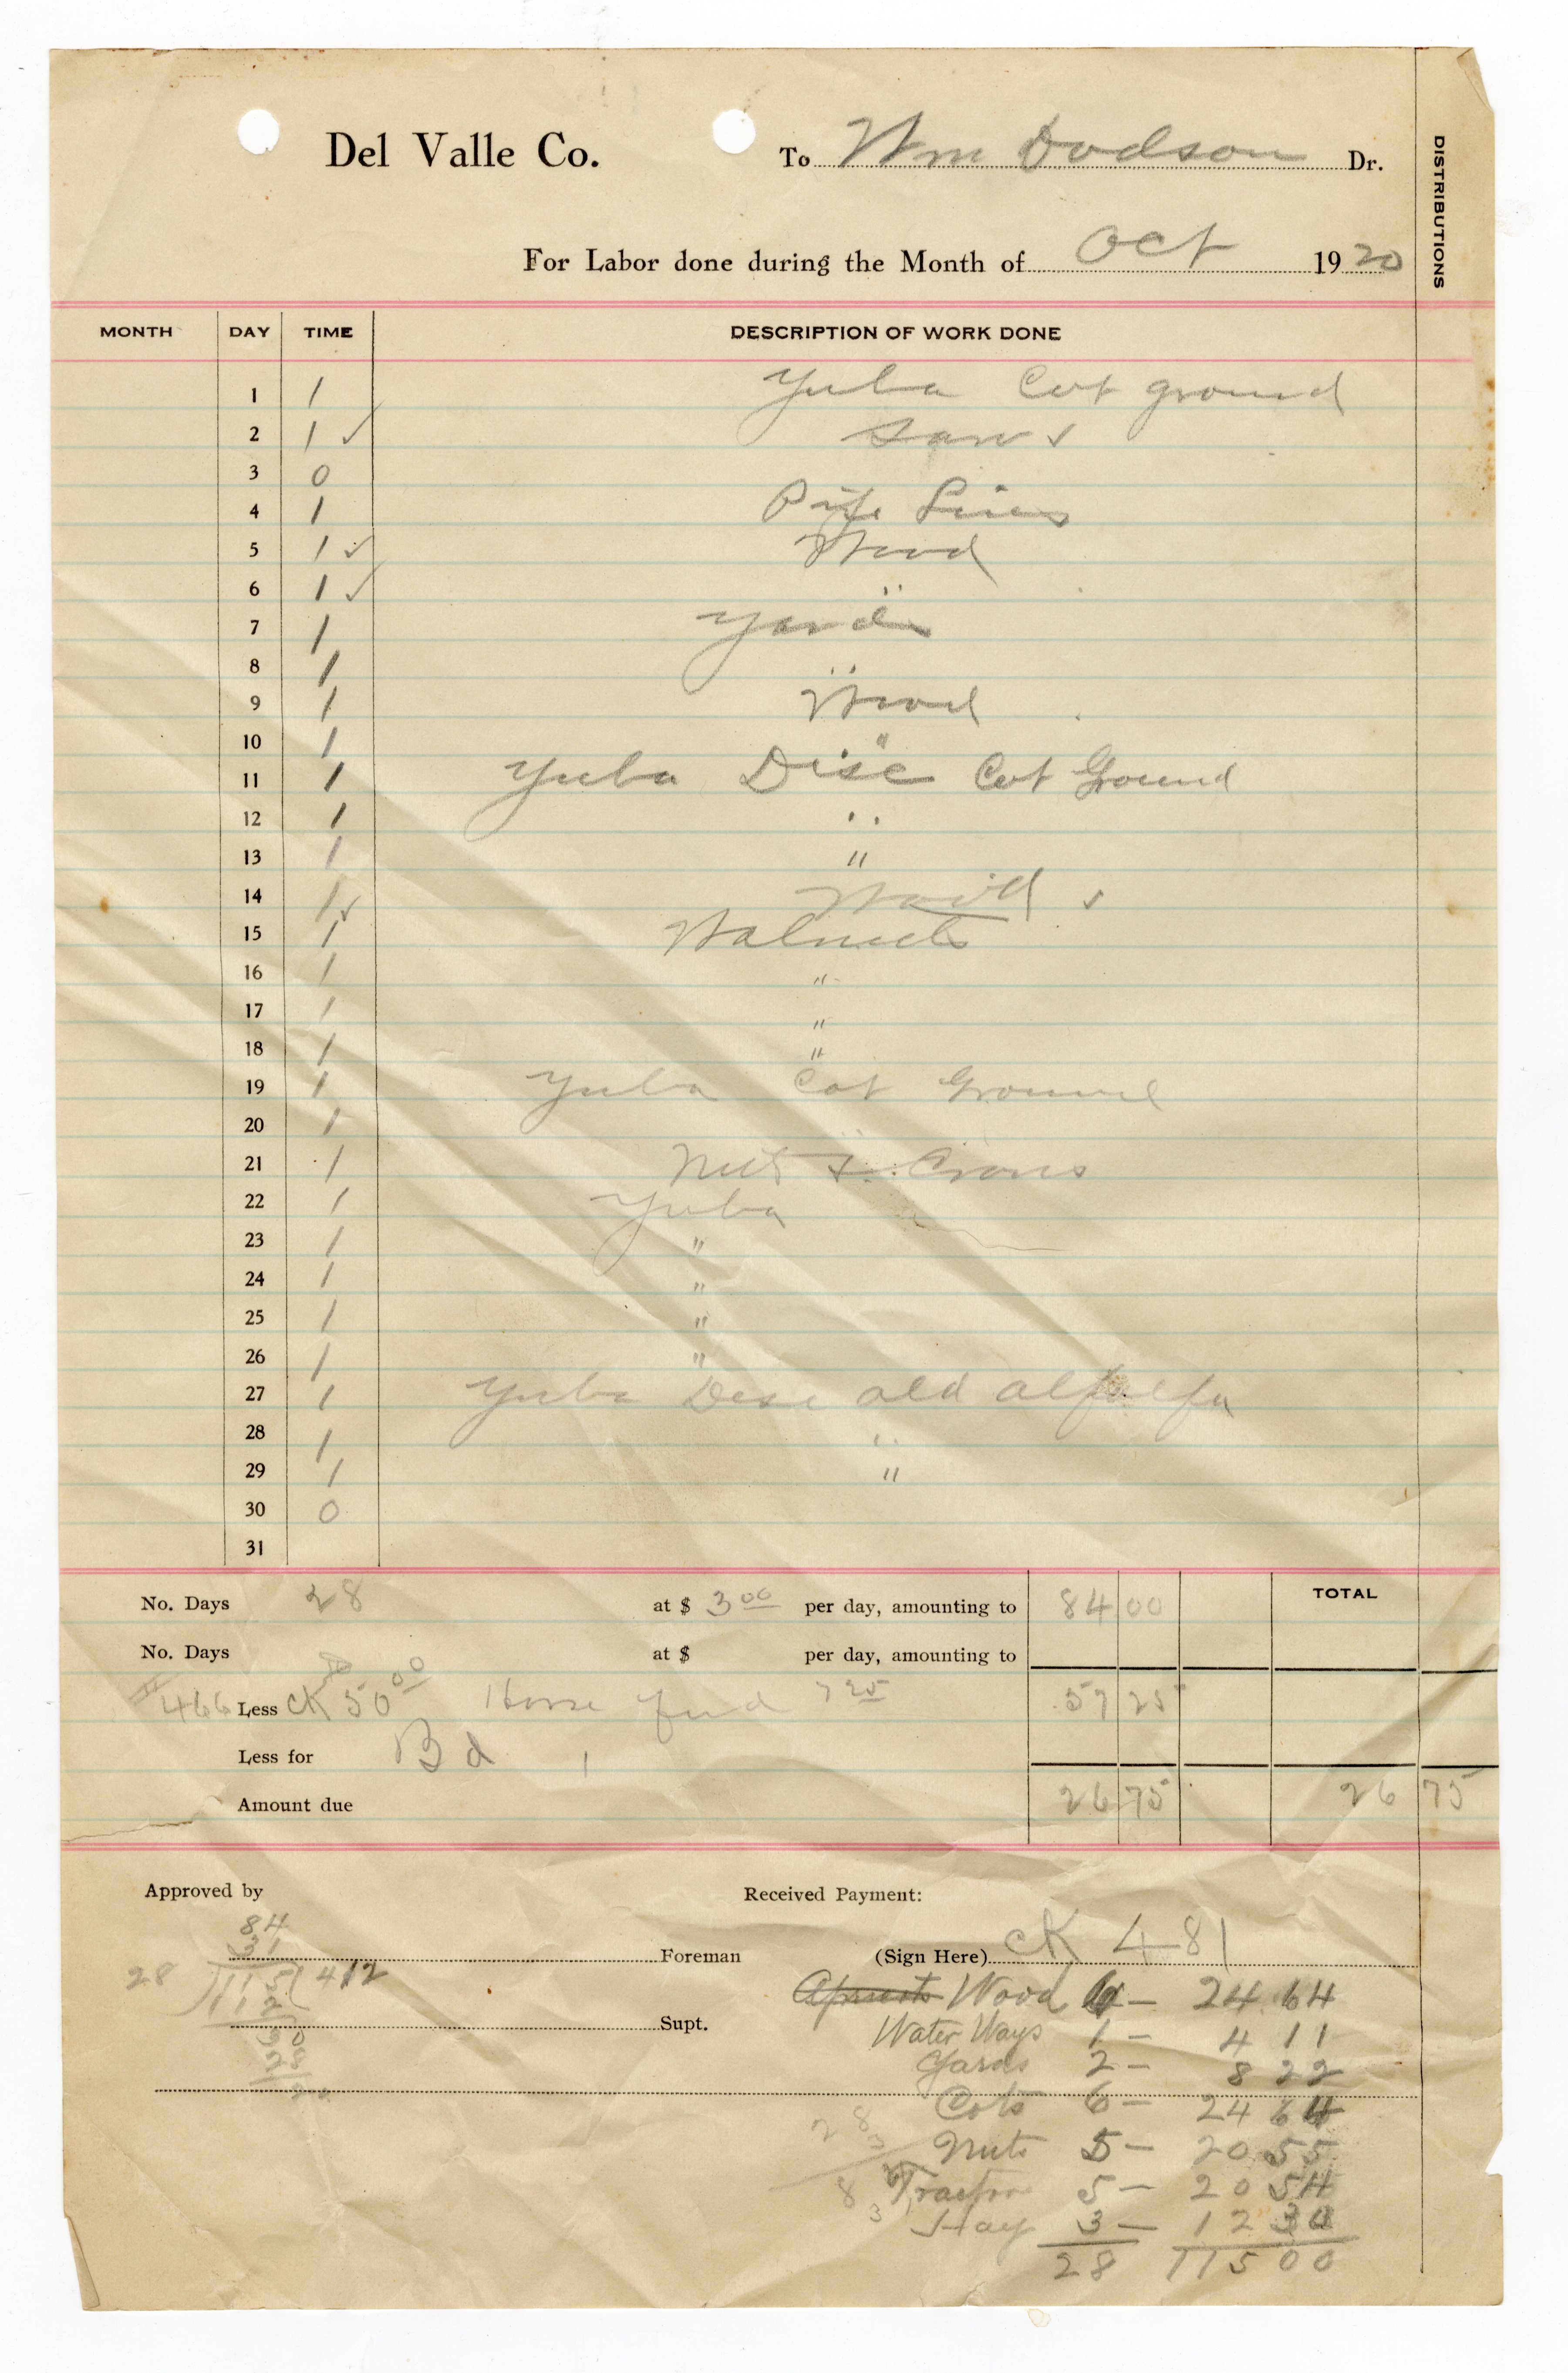 Del Valle Co. To Wm Dodson Dr.
DISTRIBUTIONS
For Labor done during the Month of Oct 1920
MONTH DAY TIME DESCRIPTION OF WORK DONE
1 1 Yuba Cot ground
2 1 ✓ Saw ✓
3 0
4 1 Pipe Lines
5 1 ✓ Wood
6 1 ✓ "
7 1 Yards
8 1 "
9 1 Wood
10 1 "
11 1 Yuba Disc Cot Ground
12 1 "
13 1 "
14 1 ✓ Wood ✓
15 1 Walnuts
16 1 "
17 1 "
18 1 "
19 1 Yuba Cot Ground
20 1 "
21 1 Nuts &
22 1 Yuba
23 1 "
24 1 "
25 1 "
26 1 "
27 1 Yuba Desc old alfalfa
28 1 "
29 1 "
30 0
31
No. Days 28 at $ 3 00 per day, amounting to 84 00 TOTAL
No. Days at $ per day, amounting to
466 Less CK 50 00 Horse feed 7 25 57 25
Less for Bd
Amount due 26 75 26 75
Approved by Received Payment:
84
31
Foreman (Sign Here) CK 481
28 115 412
112
Supt.
Wood 6 — 24 64
Water Ways 1 — 4 11
Yards 2 — 8 22
Cots 6 — 24 64
Nuts 5 — 20 55
Tractor 5 — 20 54
Hay 3 — 12 30
28 115 00